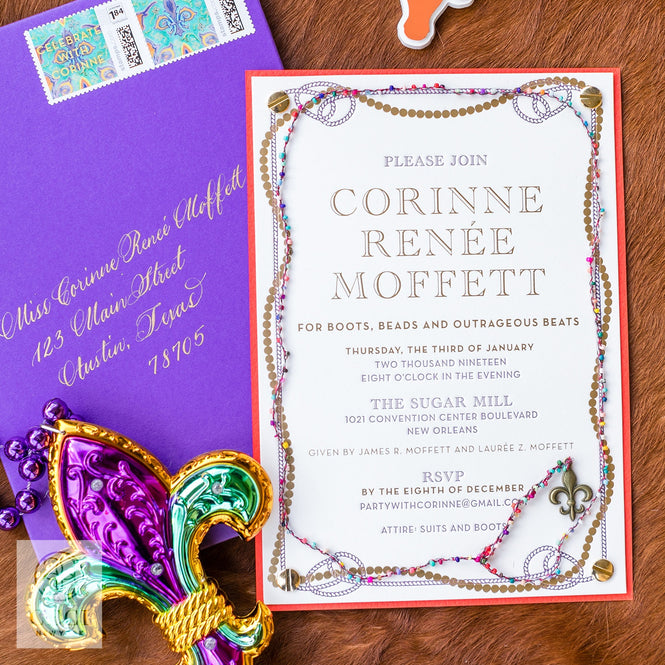 CELEBRATE
WITH
CORINNE
1.84
Miss Corinne Reneé Moffett
123 Main Street
Austin, Texas
78705
PLEASE JOIN
CORINNE
RENÉE
MOFFETT
FOR BOOTS, BEADS AND OUTRAGEOUS BEATS
THURSDAY, THE THIRD OF JANUARY
TWO THOUSAND NINETEEN
EIGHT O'CLOCK IN THE EVENING
THE SUGAR MILL
1021 CONVENTION CENTER BOULEVARD
NEW ORLEANS
GIVEN BY JAMES R. MOFFETT AND LAURÉE Z. MOFFETT
RSVP
BY THE EIGHTH OF DECEMBER
PARTYWITHCORINNE@GMAIL.CO
ATTIRE: SUITS AND BOOTS